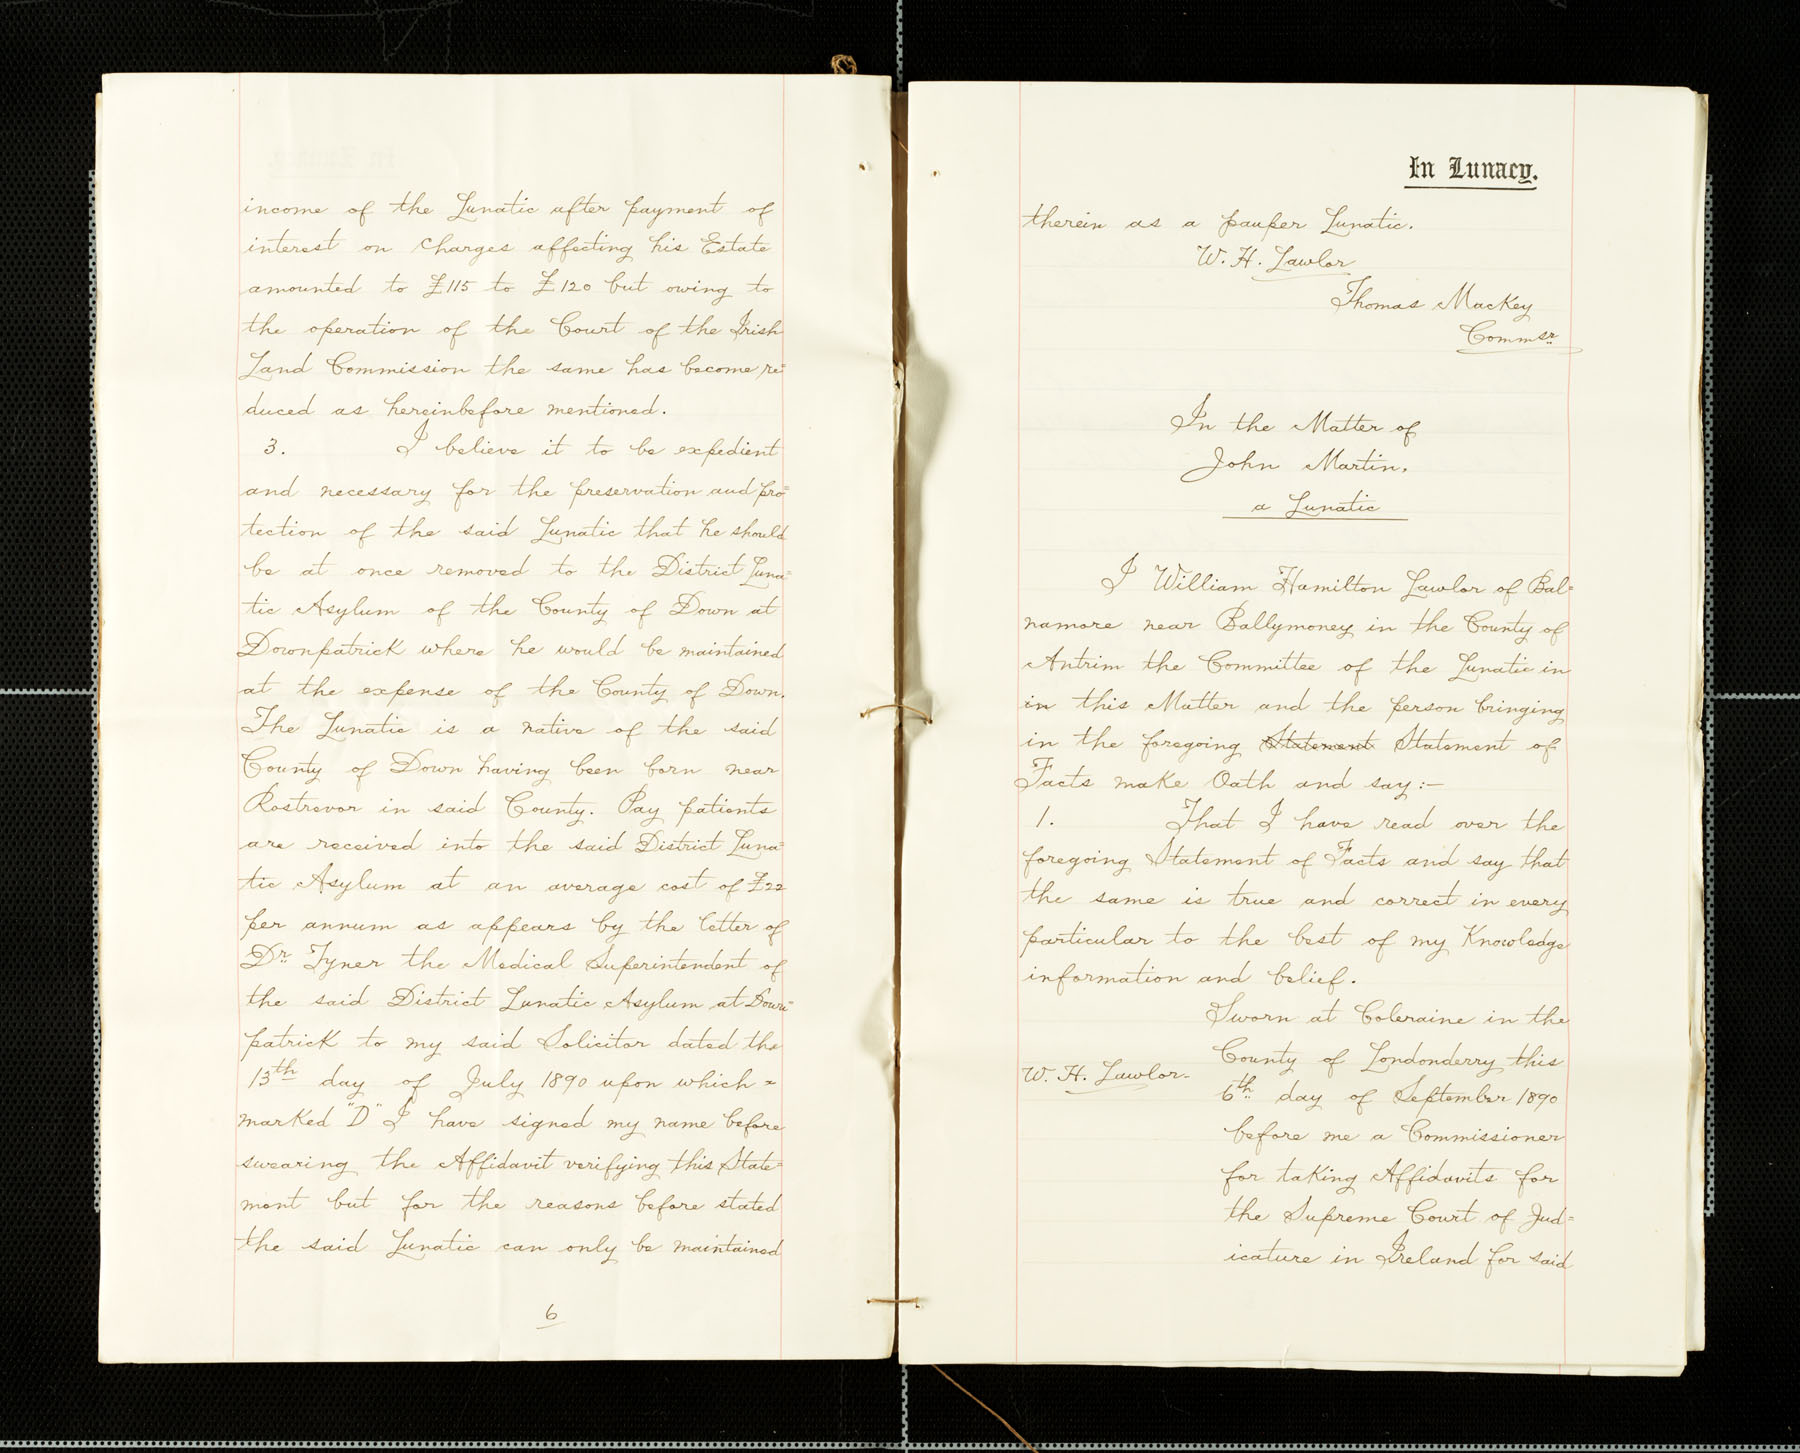 income of the Lunatic after payment of
interest on Charges affecting his Estate
amounted to £115 to £120 but owing to
the operation of the Court of the Irish
Land Commission the same has become re=
duced as hereinbefore mentioned.
3. I believe it to be expedient
and necessary for the preservation and pro=
tection of the said Lunatic that he should
be at once removed to the District Luna=
tic Asylum of the County of Down at
Downpatrick where he would be maintained
at the expense of the County of Down.
The Lunatic is a native of the said
County of Down having been born near
Rostrevor in said County. Pay patients
are received into the said District Luna=
tic Asylum at an average cost of £22
per annum as appears by the letter of
Dr. Tyner the Medical Superintendent of
the said District Lunatic Asylum at Down=
patrick to my said Solicitor dated the
13th day of July 1890 upon which =
marked "D" I have signed my name before
swearing the Affidavit verifying this State=
ment but for the reasons before stated
the said Lunatic can only be maintained
6
In Lunacy.
therein as a pauper Lunatic.
W. H. Lawlor
Thomas Mackey
Commsr
In the Matter of
John Martin,
a Lunatic
I William Hamilton Lawlor of Bal=
namore near Ballymoney in the County of
Antrim the Committee of the Lunatic in
in this Matter and the person bringing
in the foregoing Statement Statement of
Facts make Oath and say:—
1. That I have read over the
foregoing Statement of Facts and say that
the same is true and correct in every
particular to the best of my Knowledge
information and belief.
Sworn at Coleraine in the
County of Londonderry this
W. H. Lawlor-
6th day of September 1890
before me a Commissioner
for taking Affidavits for
the Supreme Court of Jud=
icature in Ireland for said